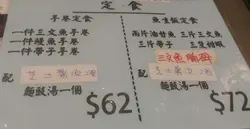 定食
手卷定食
一件三文魚手卷
一件鰻魚手卷
一件帶子手卷
配
麵豉湯一個
$62
魚生飯定食
兩片油甘魚 三片三文魚
三片帶子 三隻甜蝦
三文魚腩碎
配
麵豉湯一個
$72